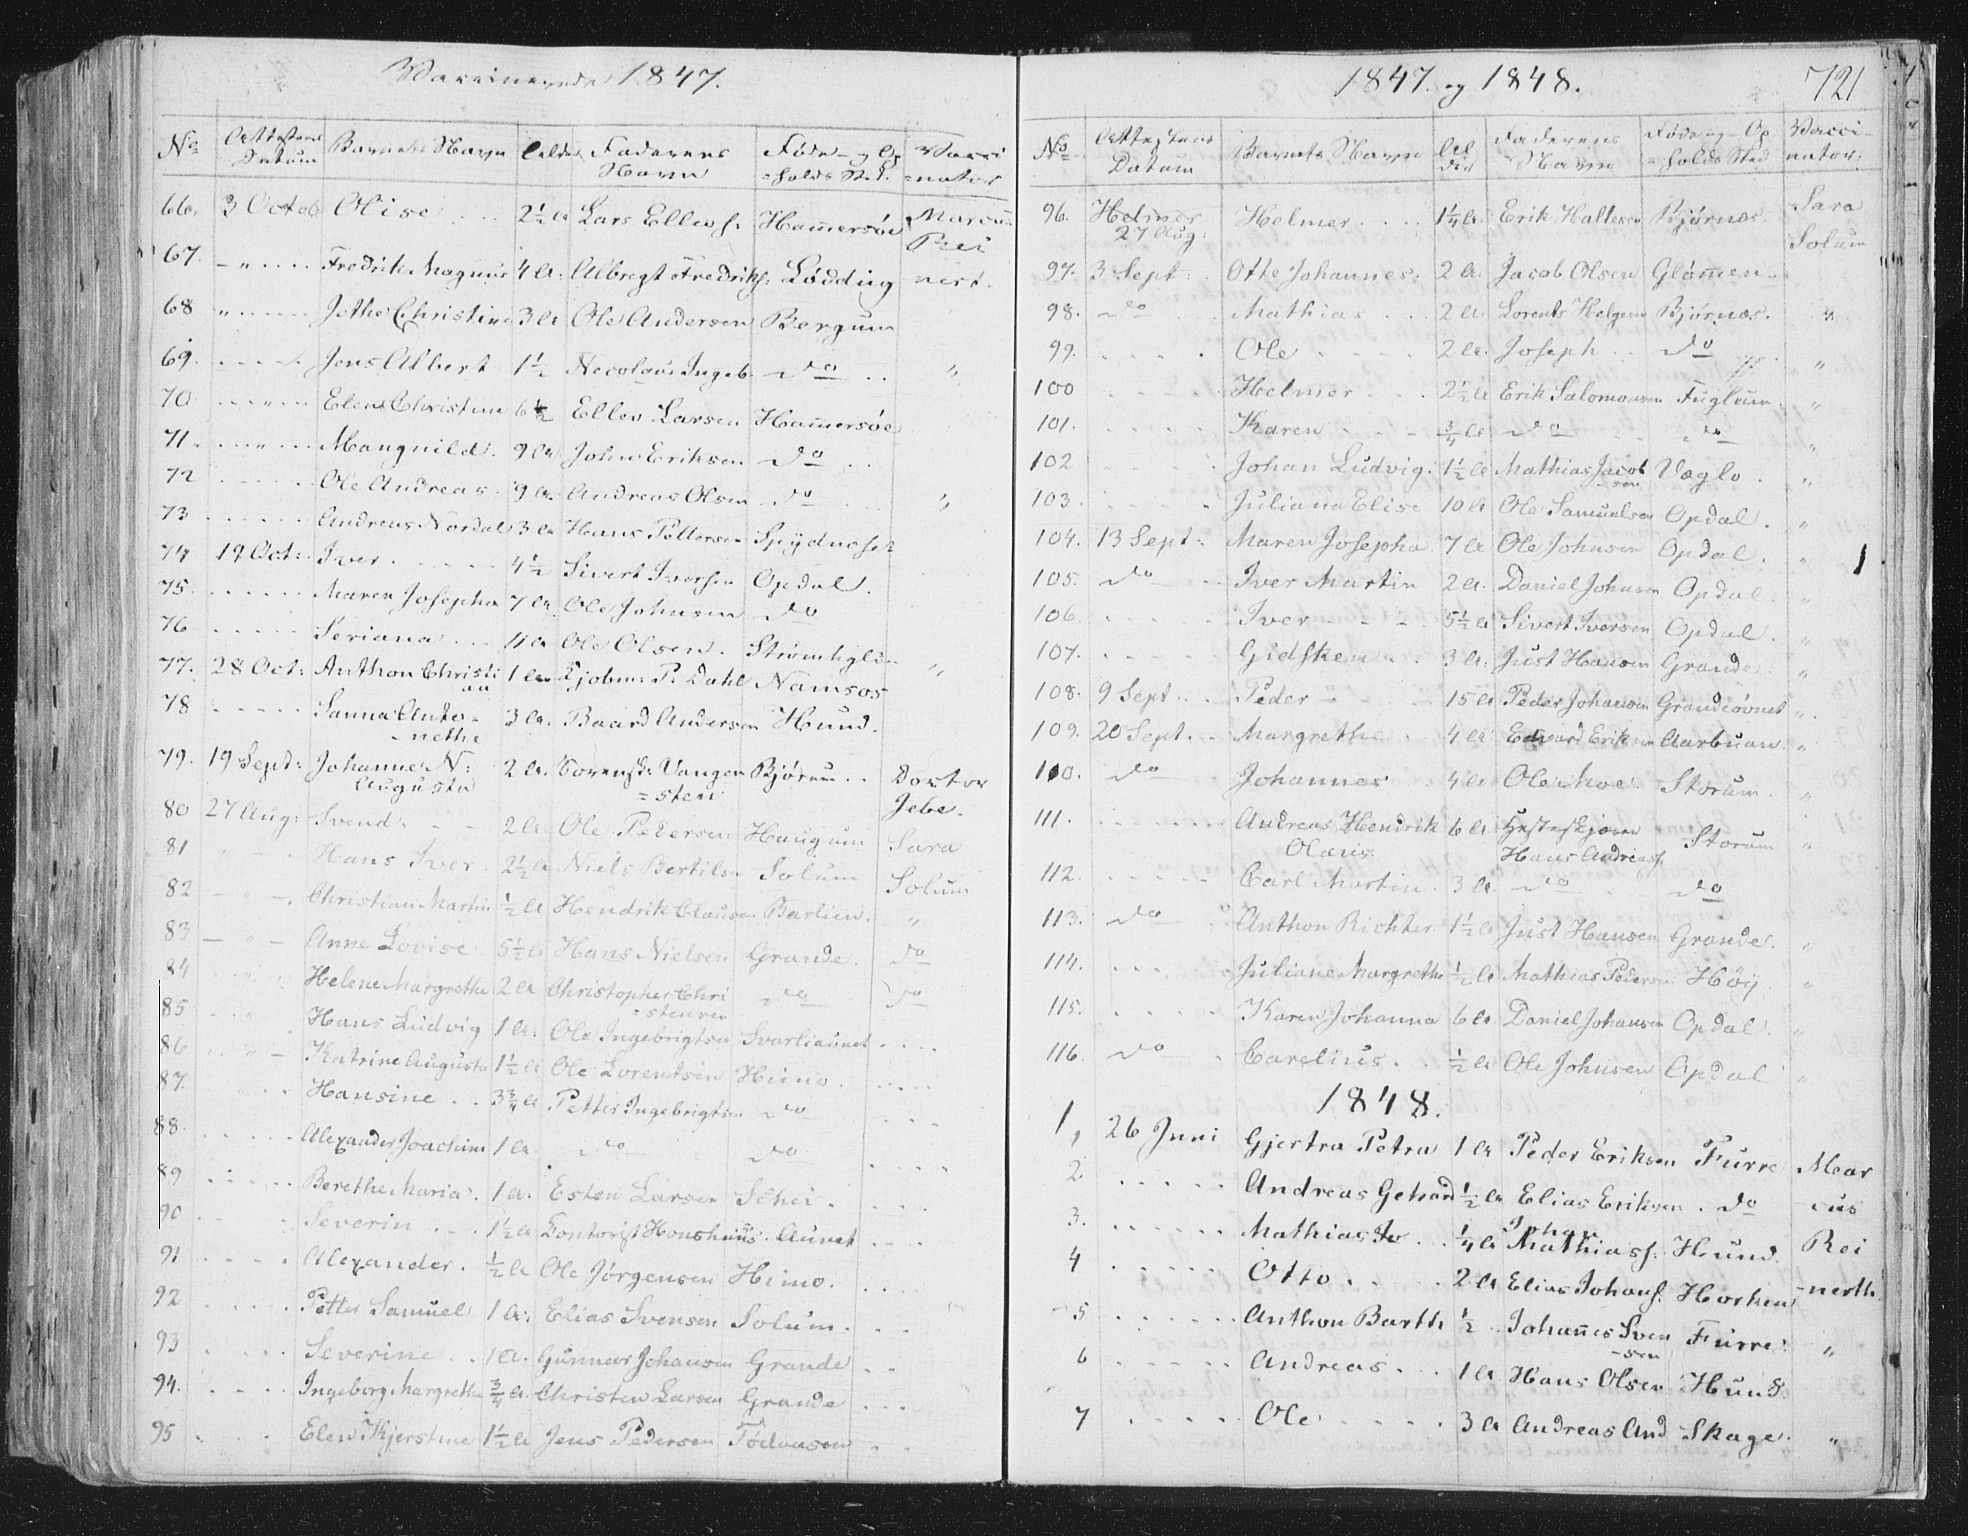 Vaccinerede 1847.
No Attestens Datum Barnets Navn Alder Faderens Navn Føde- og Op=holds Sted. Vacci=nator
66. 3 Octob Olise 2½ A Lars Ellevs. Ham̄ersøe Marcus
Rei
67. - " Fredrik Magnus 4 A. Albregt Fredriks. Lødding nert.
68 " Jethe Christine 3 A Ole Andersen Bergum
69. Jens Albert 1½ Necolaus Ingeb. do "
70 Elen Christine 6½ Ellev Larsen Ham̄ersøe
71. " Mangnild. 9 A. John Eriksen do
72 Ole Andreas. 9 A. Andreas Olsen do "
73 Andreas Nordal 3 A Hans Pettersen
74 19 Oct: Iver 4½ Sivert Iversen Opdal.
75. Maren Josepha 7 A Ole Johnsen do
76 Seriana 11 A Ole Olsen. Strømhyld
77. 28 Oct: Anthon Christi
an 1 A Kjøbm: P. Dahl Namsos "
78 Sanna Anto=
nethe 3 A. Baard Andersen Hund.
79. 19 Sept: Johanne N:
Augusta 2 A. Sorensk: Vangen
=sten Bjørum Doctor
Jebe.
80 27 Aug: Svend 2 A Ole Pedersen Haugum Sara
81 Hans Iver. 2½ A Niels Bertilsen Solum Solum
82 - " - Christian Martin ½ A Hendrik Clausen Barlien. "
83 - " - Anne Lovise 5½ A Hans Nielsen Grande. do
84 " Helene Margrethe 2 A Christopher Chri
=stensen do do
85 " Hans Ludvig 1 A. Ole Ingebrigtsen Svarliaunet
86 " - Katrine Augusta 1½ A Ole Lorentsen Himo.
87. Hansine 3¾ A Petter Ingebrigtsen do
88. Alexander Joachim 1 A do do
89 Berethe Maria. 1 A. Esten Larsen Schei.
90 Severin 1½ A Aunet
91 Alexander. ½ A Ole Jørgensen Himo.
92 Petter Samuel 1 A. Elias Svensen Solum.
93 Severine 1 A. Gunnar Johansen Grande
94. Ingeborg Margrethe ¾ A. Christen Larsen Grande
95 Elen Kjerstine 1½ A Jens Pedersen
1847. og 1848. 721
No Attestens Datum Barnets Navn Alder Faderens Navn Føde og Op=holds Sted Vacci-nator.
96. Helmer
27 Aug: Helmer 1¼ A. Erik Halles Bjørnæs. Sara
Solum
97. 3 Sept: Otte Johannes. 2 A. Jacob Olsen Gløm̄en.
98. do Mathias 2 A. Lorents Helgesen Bjørnæs. "
99. Ole 2 A. Joseph do "
100 Helmer 2½ A Erik Salomonsen Fuglum. "
101. Karen ¾ A do do "
102 Johan Ludvig. 1½ A Mathias Jacob
-sen Væglo. "
103. Juliana Elise 10 A Ole Samuelsen Opdal. "
104. 13 Sept: Maren Josepha 7 A Ole Johnsen Opdal. "
105. do Iver Martin 2 A. Daniel Johnsen Opdal. "
106. Iver 5½ A Sivert Iversen Opdal. "
107. Gidsken 3 A. Just Hansen Grande. "
108. 9 Sept. Peder 15 A Peder Johansen Grandeøvnet "
109. 20 Sept. Margrethe 4 A Edvard Eriksen Aarbuan. "
110. do Johannes 4 A Ole Moe. Storum. "
111. Andreas Hendrik
Olavis. 6 A
Hans Andreas. Storum "
112. Carl Martin. 3 A. do do
113. do Anthon Richter 1½ A Just Hansen Grande. "
114. Juliane Margrethe ½ A Mathias Pedersen Høÿ. "
115. Karen Johanna 6 A Daniel Johansen Opdal. "
116. do Carelius. ½ A Ole Johnsen Opdal "
1848.
1, 26 Juni Gjertra Petra 1 A Peder Eriksen Furre Mar
2 Andreas Gehard ½ A Elias Eriksen. do cus
3. Mathias Jo ¼ A Johan
Mathiass. Hund. Rei
4 Otto 2 A Elias Johans. Horken -nerth.
5 Anthon Barth ½ Johan̄es Sven
-sen Furre. "
6 Andreas 1 A Hans Olsen Hund.
7 Ole 3 A Andreas And Skage. "